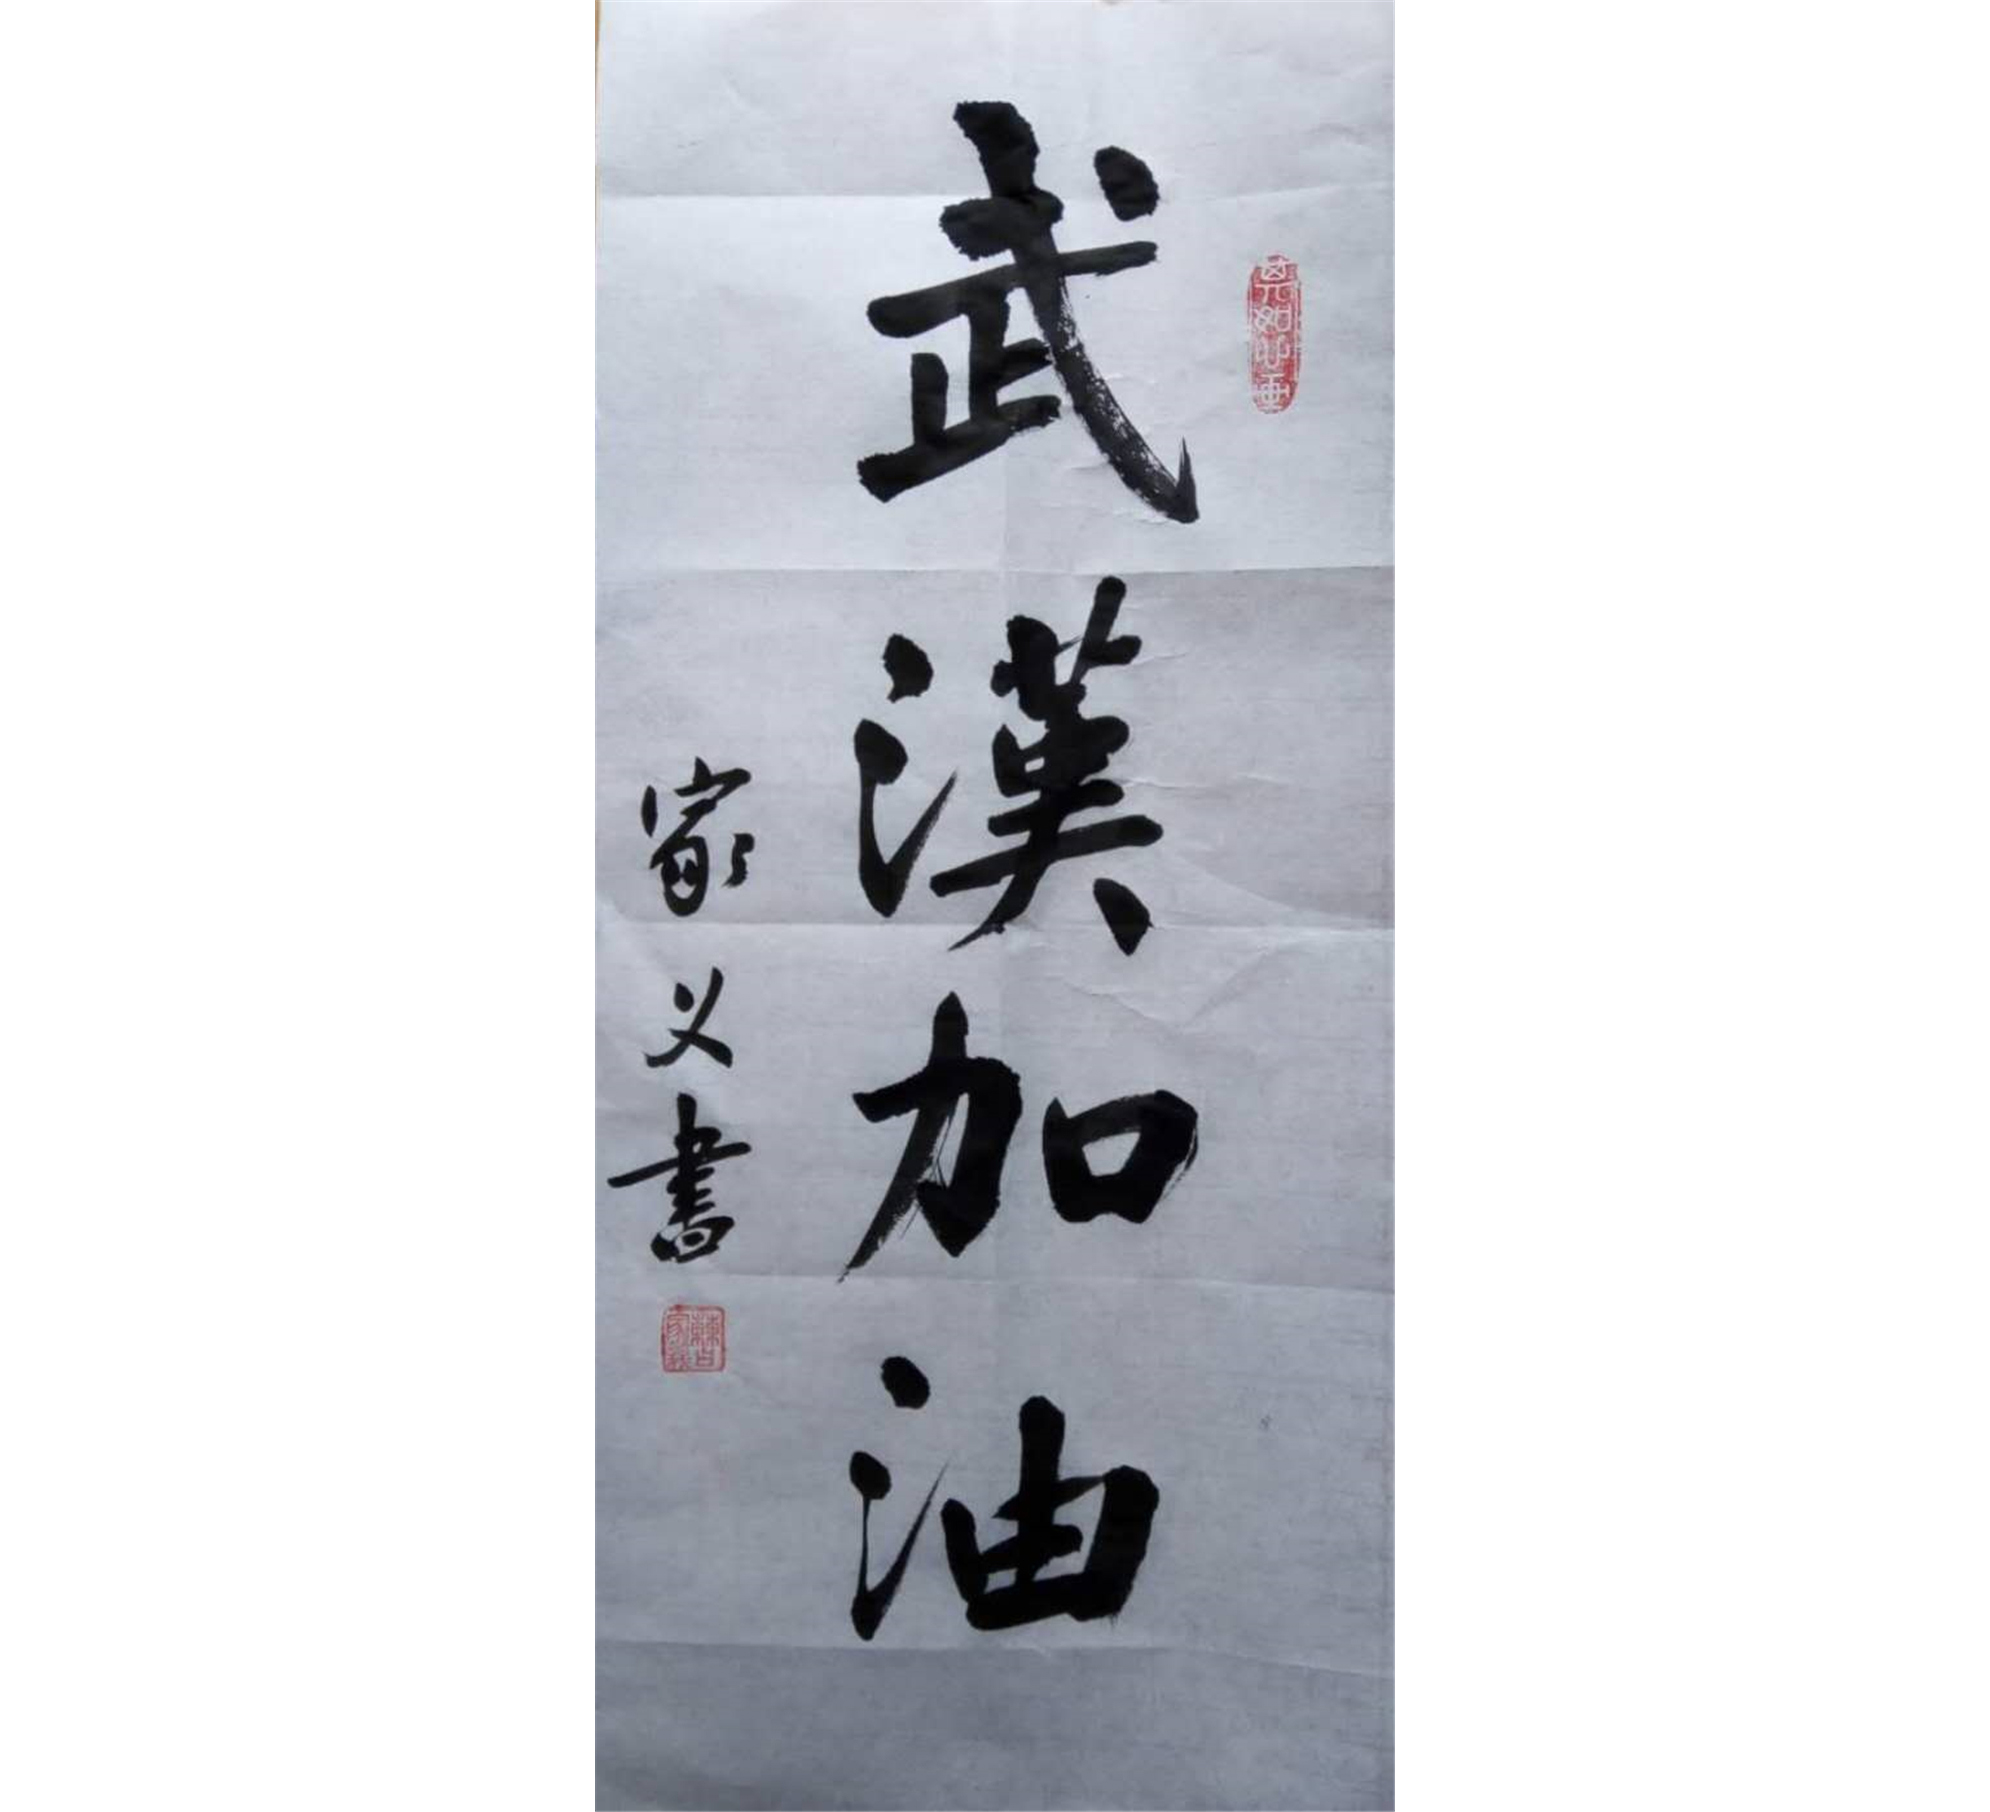 武漢加油
家义書